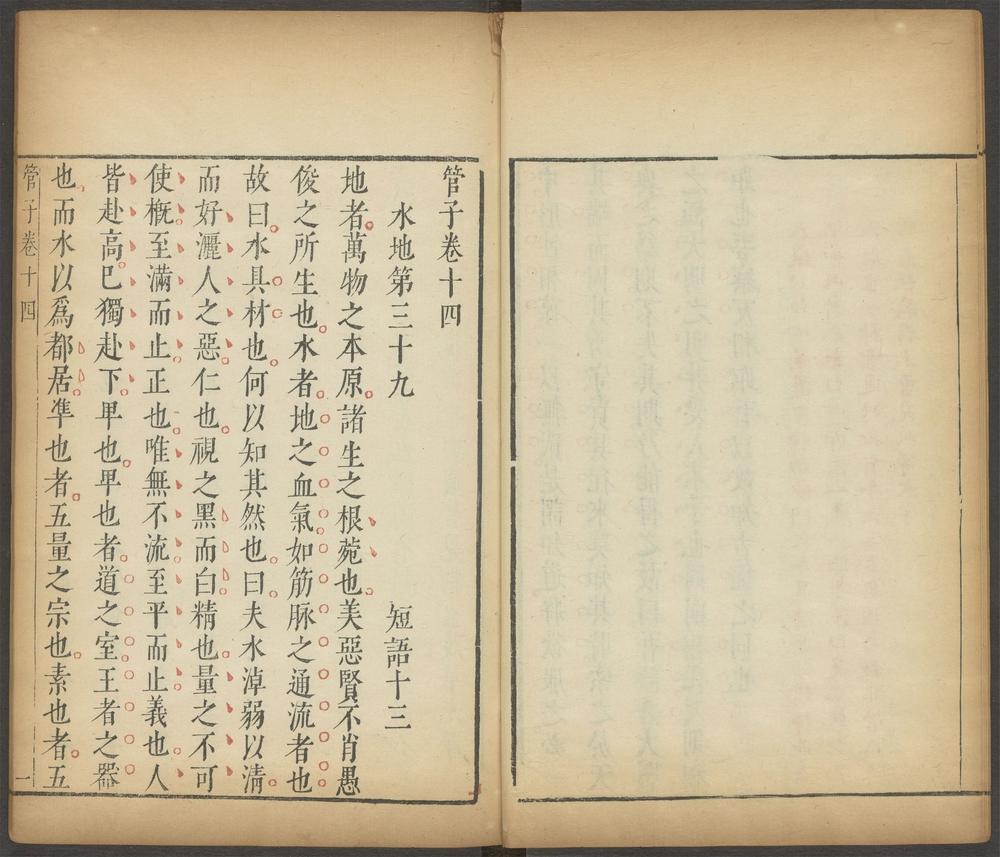 管子卷十四
水地第三十九 短語十三
地者萬物之本原諸生之根菀也美惡賢不肖愚
俊之所生也水者地之血氣如筋脉之通流者也
故曰水具材也何以知其然也曰夫水淖弱以淸
而好灑人之惡仁也視之黑而白精也量之不可
使槪至滿而止正也唯無不流至平而止義也人
皆赴高已獨赴下卑也卑也者道之室王者之器
也而水以爲都居凖也者五量之宗也素也者五
管子卷十四 一